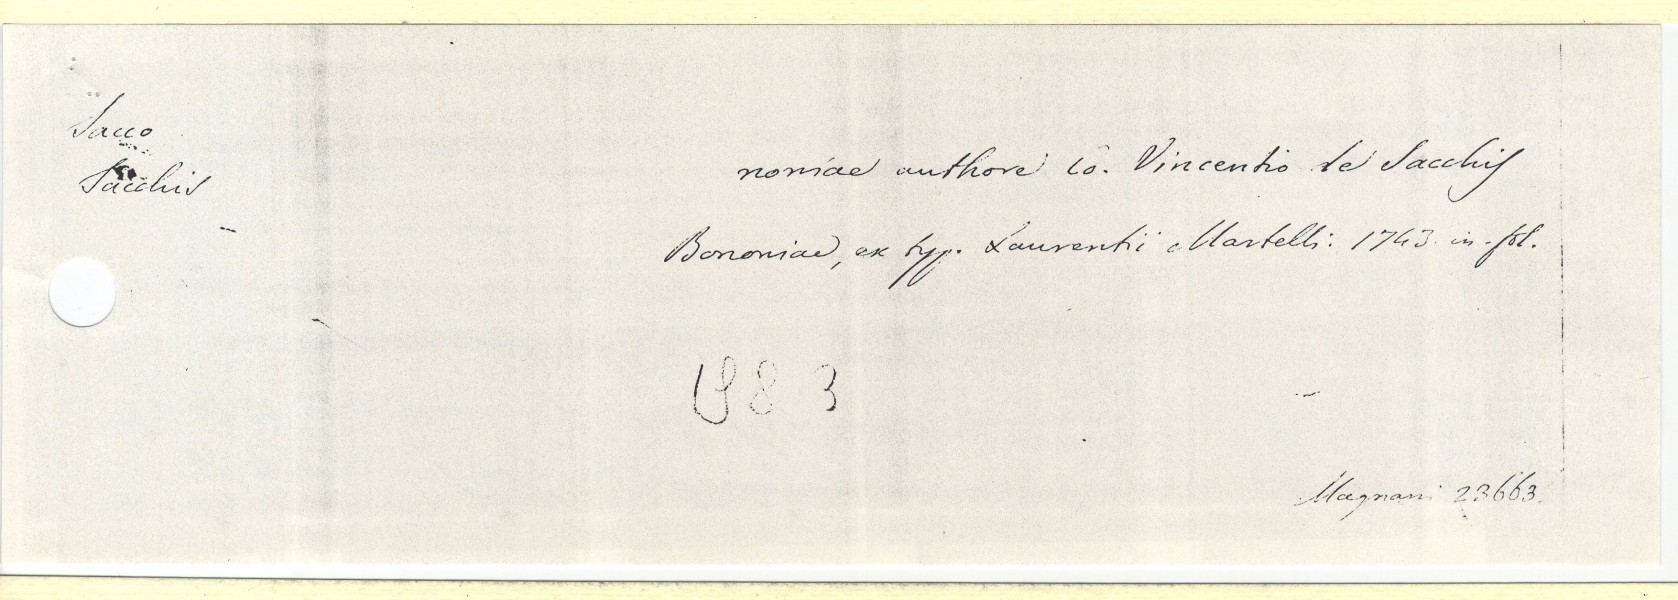 Sacco
Sacchis
noniae authore Co. Vincentio de Sacchis
Bononiae, ex typ. Laurentii Martelli. 1743. in-fol.
983
Magnani 23663.